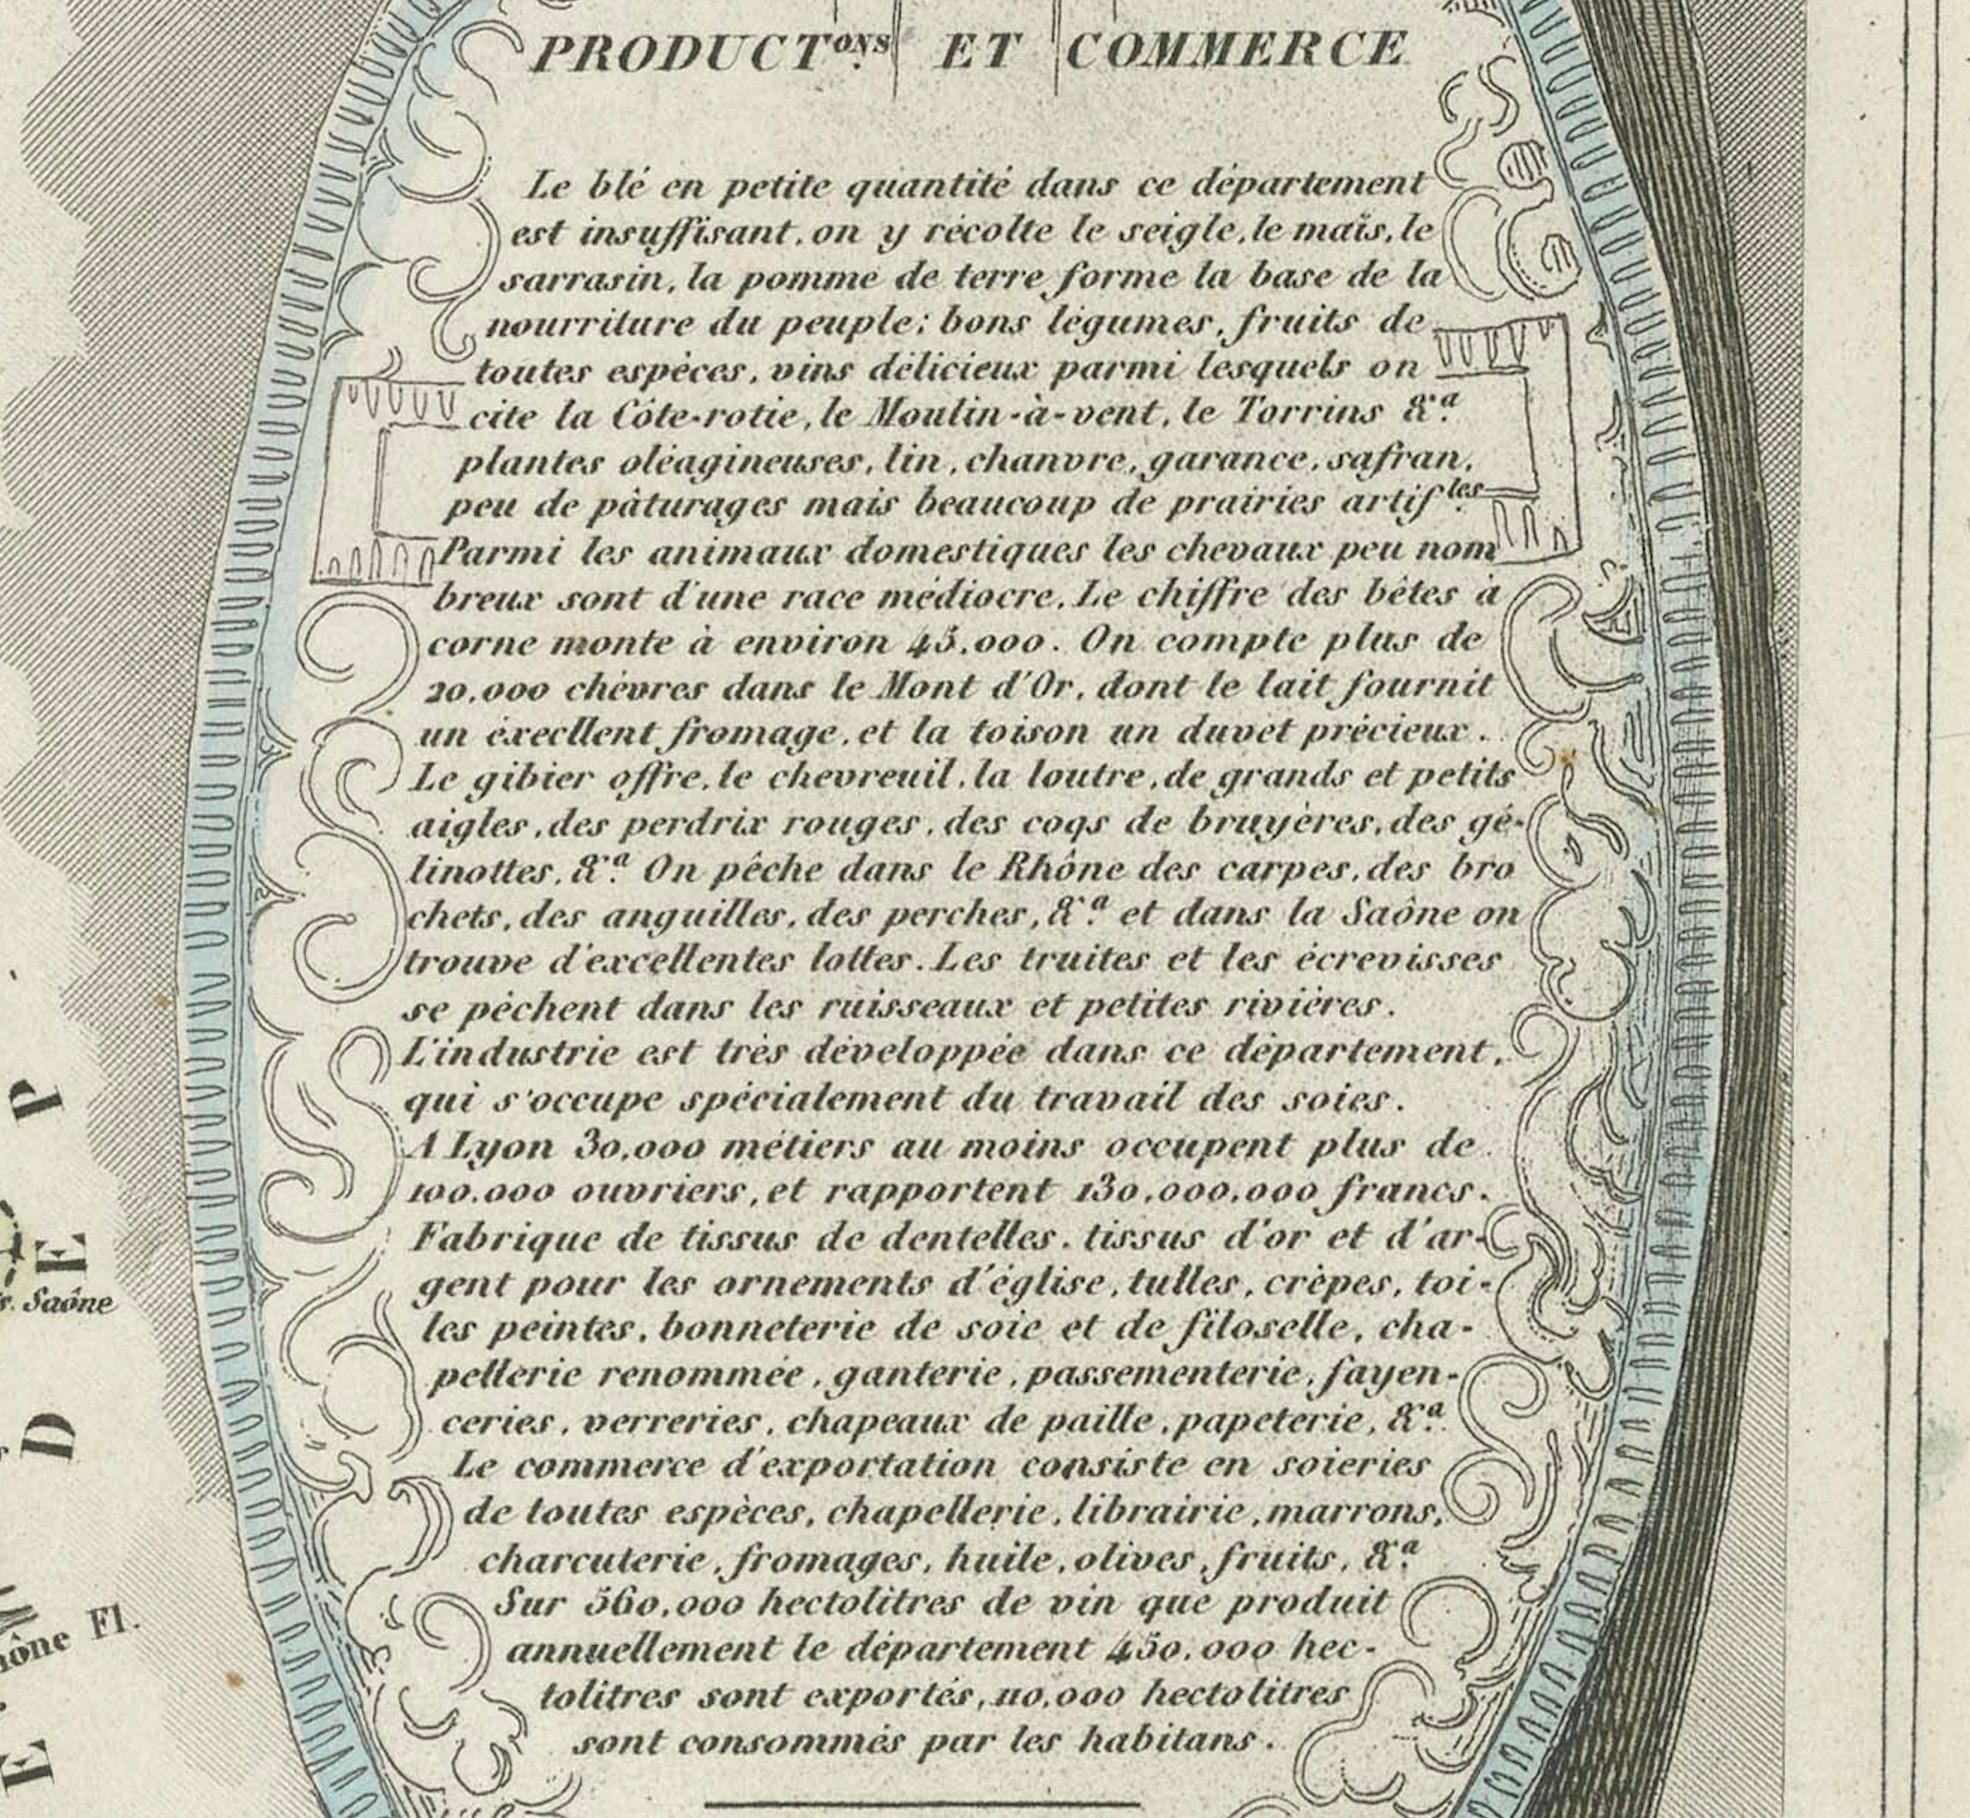 PRODUCTons ET COMMERCE
Le blé en petite quantité dans ce département
est insuffisant, on y récolte le seigle, le maïs, le
sarrasin, la pomme de terre forme la base de la
nourriture du peuple; bons légumes, fruits de
toutes espèces, vins délicieux parmi lesquels on
cite la Côte-rotie, le Moulin-à-vent, le Torrins &a.
plantes oléagineuses, lin, chanvre, garance, safran,
peu de pâturages mais beaucoup de prairies artifles.
Parmi les animaux domestiques les chevaux peu nom
breux sont d'une race médiocre. Le chiffre des bêtes à
corne monte à environ 45,000. On compte plus de
20,000 chèvres dans le Mont d'Or, dont le lait fournit
un éxecllent fromage, et la toison un duvet précieux.
Le gibier offre, le chevreuil, la loutre, de grands et petits
aigles, des perdrix rouges, des coqs de bruyères, des gé-
linottes, &a. On pêche dans le Rhône des carpes, des bro
chets, des anguilles, des perches, &a. et dans la Saône on
trouve d'excellentes lottes. Les truites et les écrevisses
se pêchent dans les ruisseaux et petites rivières.
L'industrie est très développée dans ce département,
qui s'occupe spécialement du travail des soies.
A Lyon 30,000 métiers au moins occupent plus de
100,000 ouvriers, et rapportent 130,000,000 francs.
Fabrique de tissus de dentelles, tissus d'or et d'ar-
gent pour les ornements d'église, tulles, crêpes, toi-
les peintes, bonneterie de soie et de filoselle, cha-
pellerie renommée, ganterie, passementerie, fayen-
ceries, verreries, chapeaux de paille, papeterie, &a.
Le commerce d'exportation consiste en soieries
de toutes espèces, chapellerie, librairie, marrons,
charcuterie, fromages, huile, olives, fruits, &a.
Sur 560,000 hectolitres de vin que produit
annuellement le département 450,000 hec-
tolitres sont exportés, 110,000 hectolitres
sont consommés par les habitans.
P
E
Saône
D
Fl.
E